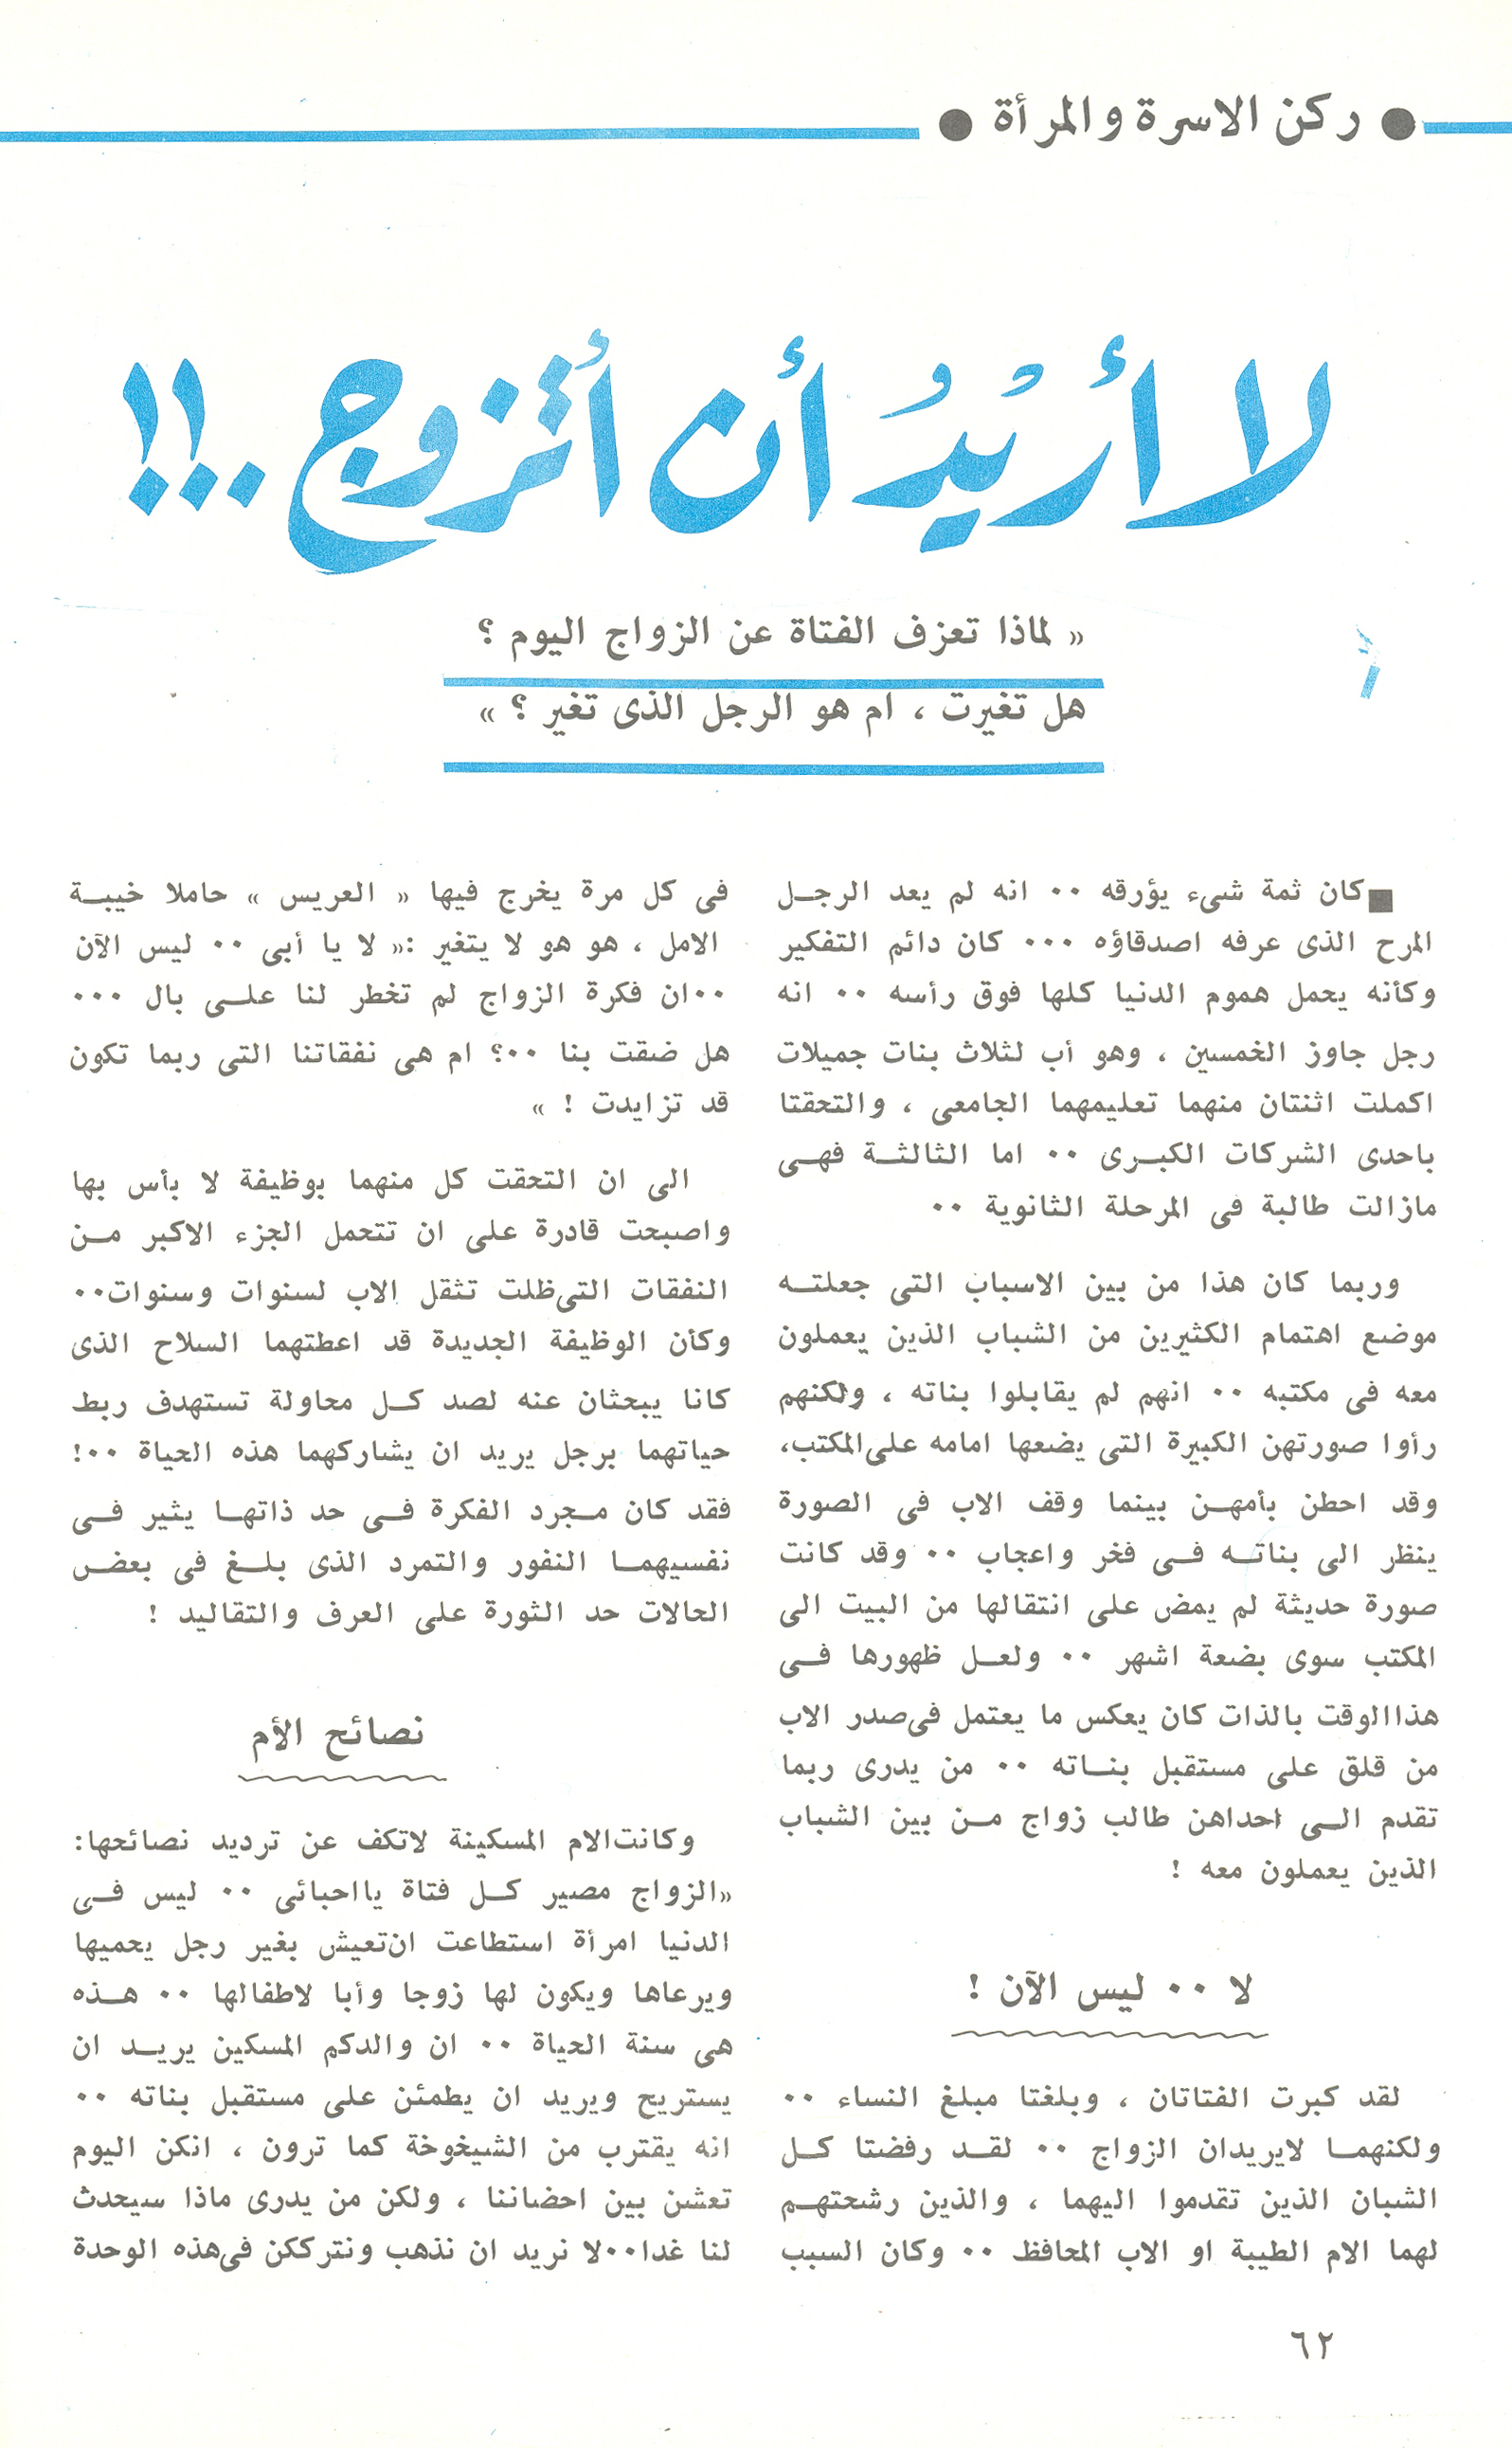 ● ركن الاسرة والمرأة ●
لا أريد أن أتزوج ..!!
« لماذا تعزف الفتاة عن الزواج اليوم ؟
هل تغيرت ، ام هو الرجل الذى تغير ؟ »
■ كان ثمة شىء يؤرقه ٠٠ انه لم يعد الرجـل
المرح الذى عرفه اصدقاؤه ٠٠٠ كان دائم التفكير
وكأنه يحمل هموم الدنيا كلها فوق رأسه ٠٠ انه
رجل جاوز الخمسين ، وهو أب لثلاث بنات جميلات
اكملت اثنتان منهما تعليمهما الجامعى ، والتحقتا
باحدى الشركات الكبـرى ٠٠ اما الثالثـة فهـى
مازالت طالبة فى المرحلة الثانوية ٠٠
وربما كان هذا من بين الاسباب التى جعلتـه
موضع اهتمام الكثيرين من الشباب الذين يعملون
معه فى مكتبه ٠٠ انهم لم يقابلوا بناته ، ولكنهم
رأوا صورتهن الكبيرة التى يضعها امامه على المكتب،
وقد احطن بأمهـن بينما وقف الاب فى الصورة
ينظر الى بناتـه فـى فخر واعجاب ٠٠ وقد كانت
صورة حديثة لم يمض على انتقالها من البيت الى
المكتب سوى بضعة اشهر ٠٠ ولعـل ظهورها فـى
هذا الوقت بالذات كان يعكس ما يعتمل فى صدر الاب
من قلق على مستقبل بنـاته ٠٠ من يدرى ربما
تقدم الـى احداهن طالب زواج مـن بين الشباب
الذين يعملون معه !
لا ٠٠ ليس الآن !
لقد كبرت الفتاتان ، وبلغتا مبلغ النساء ٠٠
ولكنهمـا لايريدان الزواج ٠٠ لقـد رفضتا كـل
الشبان الذين تقدموا اليهما ، والذين رشحتهـم
لهما الام الطيبة او الاب المحافظ ٠٠ وكان السبب
فى كل مرة يخرج فيها « العريس » حاملا خيبـة
الامل ، هو هو لا يتغير :« لا يا أبى ٠٠ ليس الآن
٠٠ان فكرة الزواج لم تخطر لنا علـى بال ٠٠٠
هل ضقت بنا ٠٠؟ ام هى نفقاتنا التى ربما تكون
قد تزايدت ! »
الى ان التحقت كل منهما بوظيفة لا بأس بها
واصبحت قادرة على ان تتحمل الجزء الاكبر مـن
النفقات التى ظلت تثقل الاب لسنوات وسنوات٠٠
وكأن الوظيفة الجديدة قد اعطتهما السلاح الذى
كانا يبحثان عنه لصد كـل محاولة تستهدف ربط
حياتهما برجل يريد ان يشاركهما هذه الحياة ٠٠!
فقد كان مـجرد الفكرة فـى حد ذاتهـا يثير فـى
نفسيهمـا النفور والتمرد الذى بلـغ فى بعض
الحالات حد الثورة على العرف والتقاليد !
نصائح الأم
وكانت الام المسكينة لاتكف عن ترديد نصائحها:
«الزواج مصير كـل فتاة يااحبائى ٠٠ ليس فـى
الدنيا امرأة استطاعت ان تعيش بغير رجل يحميها
ويرعاها ويكون لها زوجا وأبا لاطفالها ٠٠ هـذه
هى سنة الحياة ٠٠ ان والدكم المسكين يريـد ان
يستريح ويريد ان يطمئن على مستقبل بناته ٠٠
انه يقترب من الشيخوخة كما ترون ، انكن اليوم
تعشن بين احضاننا ، ولكن من يدرى ماذا سيحدث
لنا غدا٠٠لا نريد ان نذهب ونترككن فى هذه الوحدة
٦٢